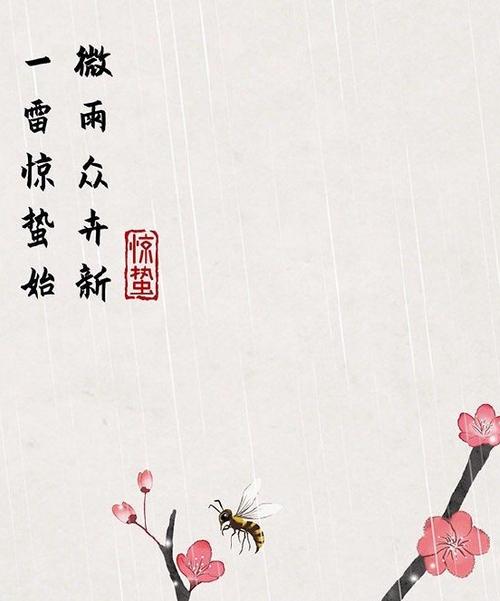 微雨众卉新
一雷惊蛰始
惊蛰